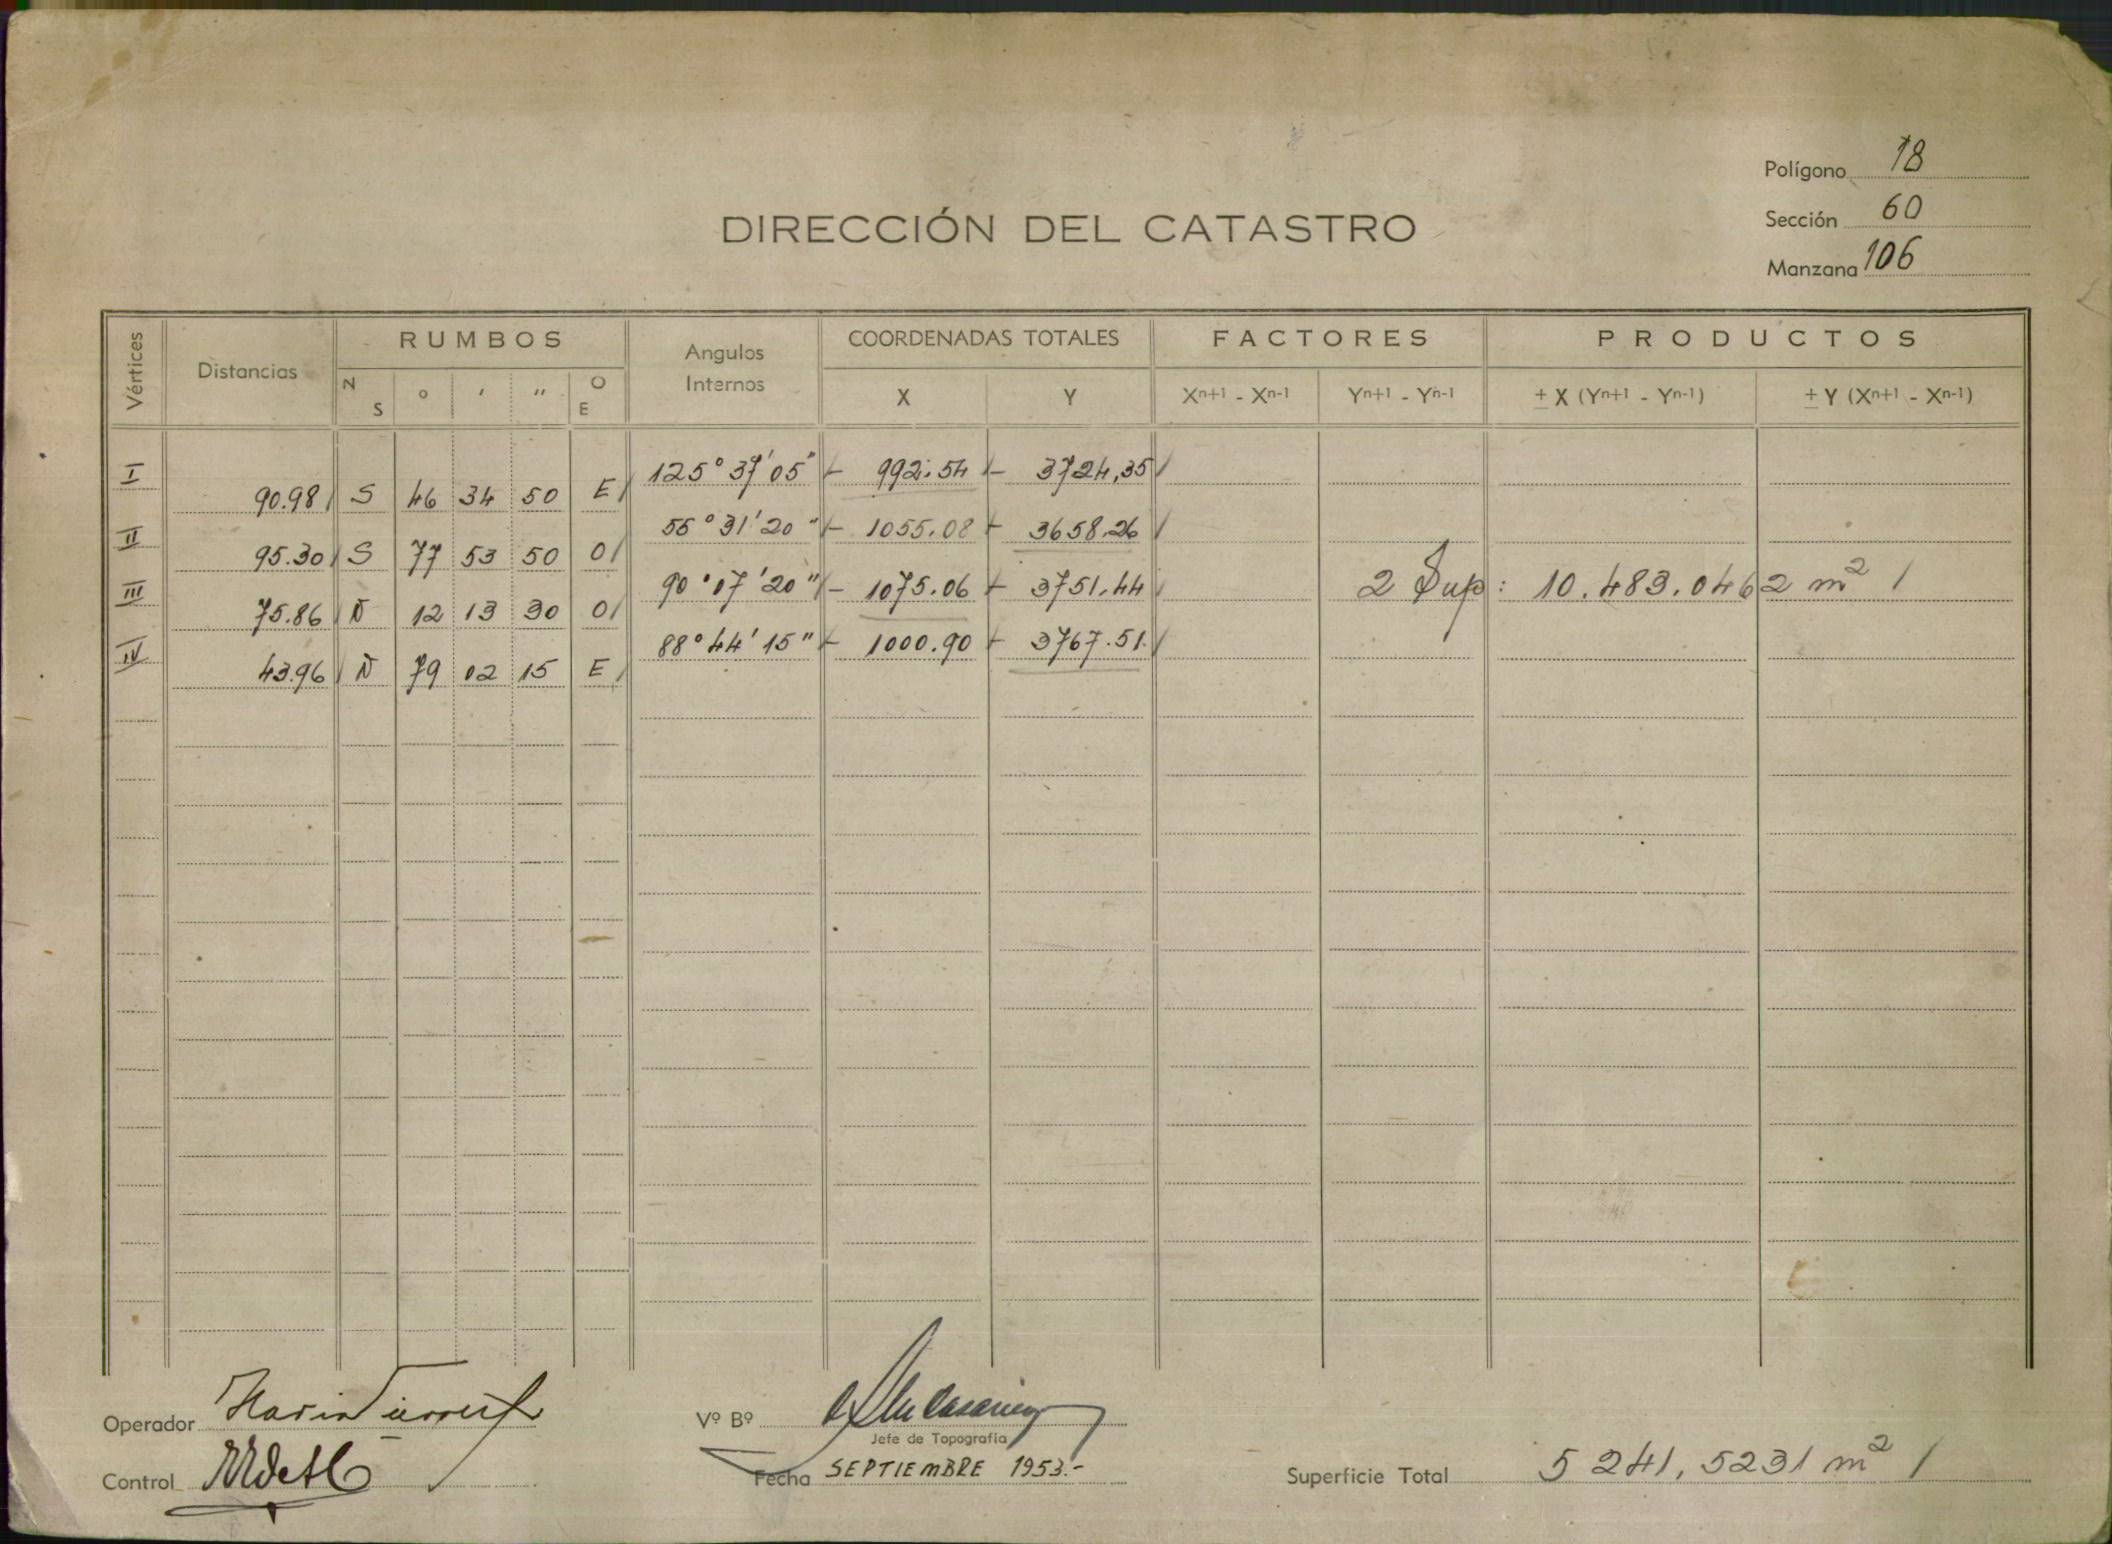 Polígono 18
Sección 60
Manzana 106
DIRECCIÓN DEL CATASTRO
Vértices Distancias RUMBOS Angulos Internos COORDENADAS TOTALES FACTORES PRODUCTOS
N S ° ′ ″ O E X Y Xn+1 - Xn-1 Yn+1 - Yn-1 ± X (Yn+1 - Yn-1) ± Y (Xn+1 - Xn-1)
I 125° 37′ 05″ - 992.54 - 3724,35
90.98 S 46 34 50 E
II 55° 31′ 20″ - 1055.08 + 3658.26
95.30 S 77 53 50 O
III 90° 07′ 20″ - 1075.06 + 3751.44 2 Sup: 10.483.0462 m²
75.86 N 12 13 30 O
IV 88° 44′ 15″ - 1000.90 + 3767.51
43.96 N 79 02 15 E
Operador
Vº Bº
Jefe de Topografía
Control
Fecha SEPTIEMBRE 1953.-
Superficie Total 5 241,5231 m²